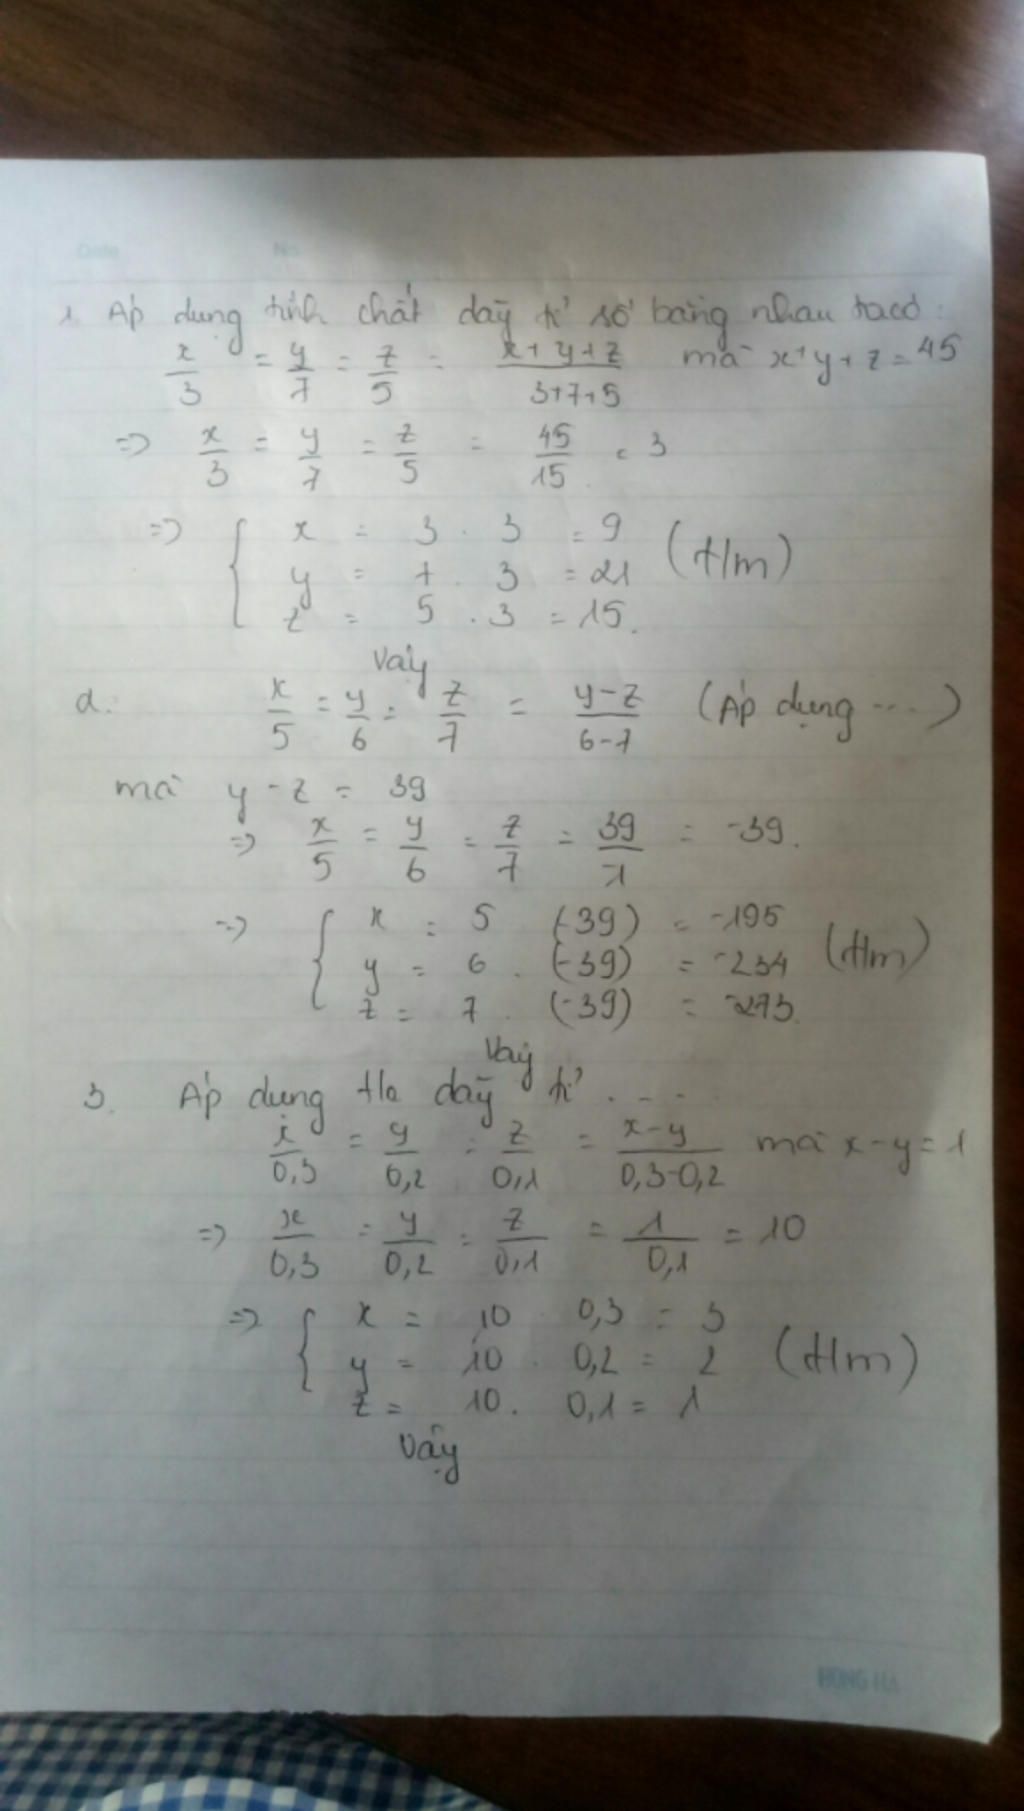 Date No.
1. Áp dụng tính chất dãy tỉ số bằng nhau ta có:
x/3 = y/7 = z/5 = (x+y+z)/(3+7+5) mà x+y+z = 45
=> x/3 = y/7 = z/5 = 45/15 = 3
=> { x = 3 . 3 = 9
y = 7 . 3 = 21 (t/m)
z = 5 . 3 = 15.
Vậy
2. x/5 = y/6 = z/7 = (y-z)/(6-7) (Áp dụng ...)
mà y - z = 39
=> x/5 = y/6 = z/7 = 39/-1 = -39.
=> { x = 5 (-39) = -195
y = 6 . (-39) = -234 (t/m)
z = 7 . (-39) = -273.
Vậy
3. Áp dụng t/c dãy tỉ ....
x/0,3 = y/0,2 = z/0,1 = (x-y)/(0,3-0,2) mà x-y = 1
=> x/0,3 = y/0,2 = z/0,1 = 1/0,1 = 10
=> { x = 10 . 0,3 = 3
y = 10 . 0,2 = 2 (t/m)
z = 10 . 0,1 = 1
Vậy
HONG HA